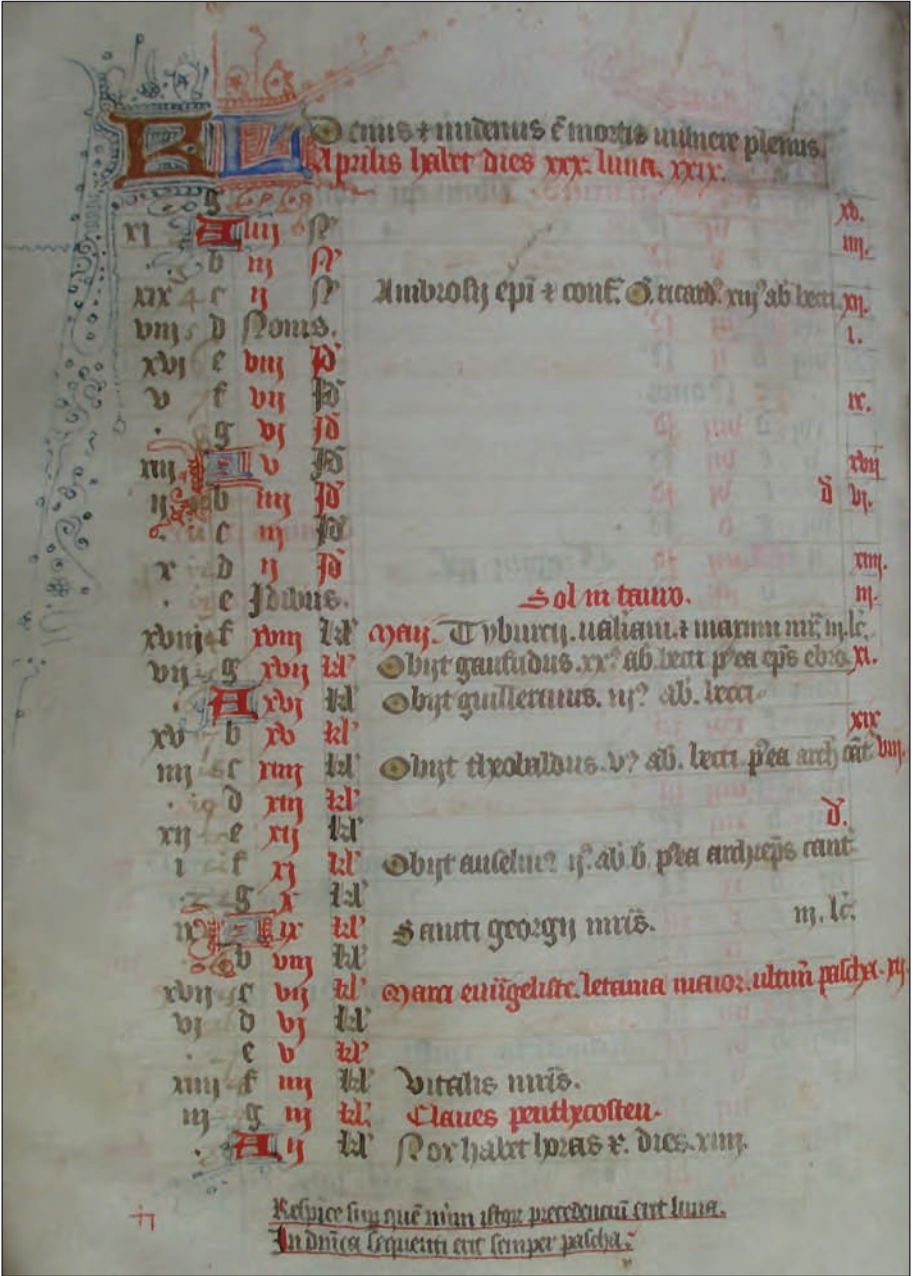 KL Denus et undenus ē mortis uulnere plenus.
Aprilis habet dies xxx. luna. xxix.
g
xv.
xi A iiij N̄
iiij.
. b iij N̄
xix c ij N̄ Ambrosij epi et conf. O. ricard. xiij ab becci. xij.
viij d Nonis. i.
xvj e viij Id
v f vij Id ix.
. g vj Id
xiij A v Id xvij
ij b iiij Id d vi.
. c iij Id
x d ij Id xiiij.
. e Idibus. Sol in tauro. iij.
xviij f xviij kl' Maij. Tyburcij. ualiani. et maximi mr. iij. lc.
vij g xvij kl' Obijt gaufridus. xx ab. becci p'ea eps ebro. xi.
. A xvj kl' Obijt guillermus. iij ab. becci.
xv b xv kl' xix
iiij c xiiij kl' Obijt theobaldus. v ab. becci. p'ea arch cāt viij.
. d xiij kl'
xij e xij kl' d.
i f xj kl' Obijt anselm ij ab b. p'ea archieps cant
g x kl'
ix A ix kl' Sancti georgij mris. iij. lc.
b viij kl'
xvij c vij kl' Marci euūgeliste. letania maior. ultim pascha. xij
vj d vj kl'
. e v kl'
xiiij f iiij kl' Vitalis mris.
iij g iij kl' Claues penthecosten.
. A ij kl' Nox habet horas x. dies. xiiij.
Respice sup quē nūm istor precedenciū erit luna.
In dnica sequenti erit semper pascha.